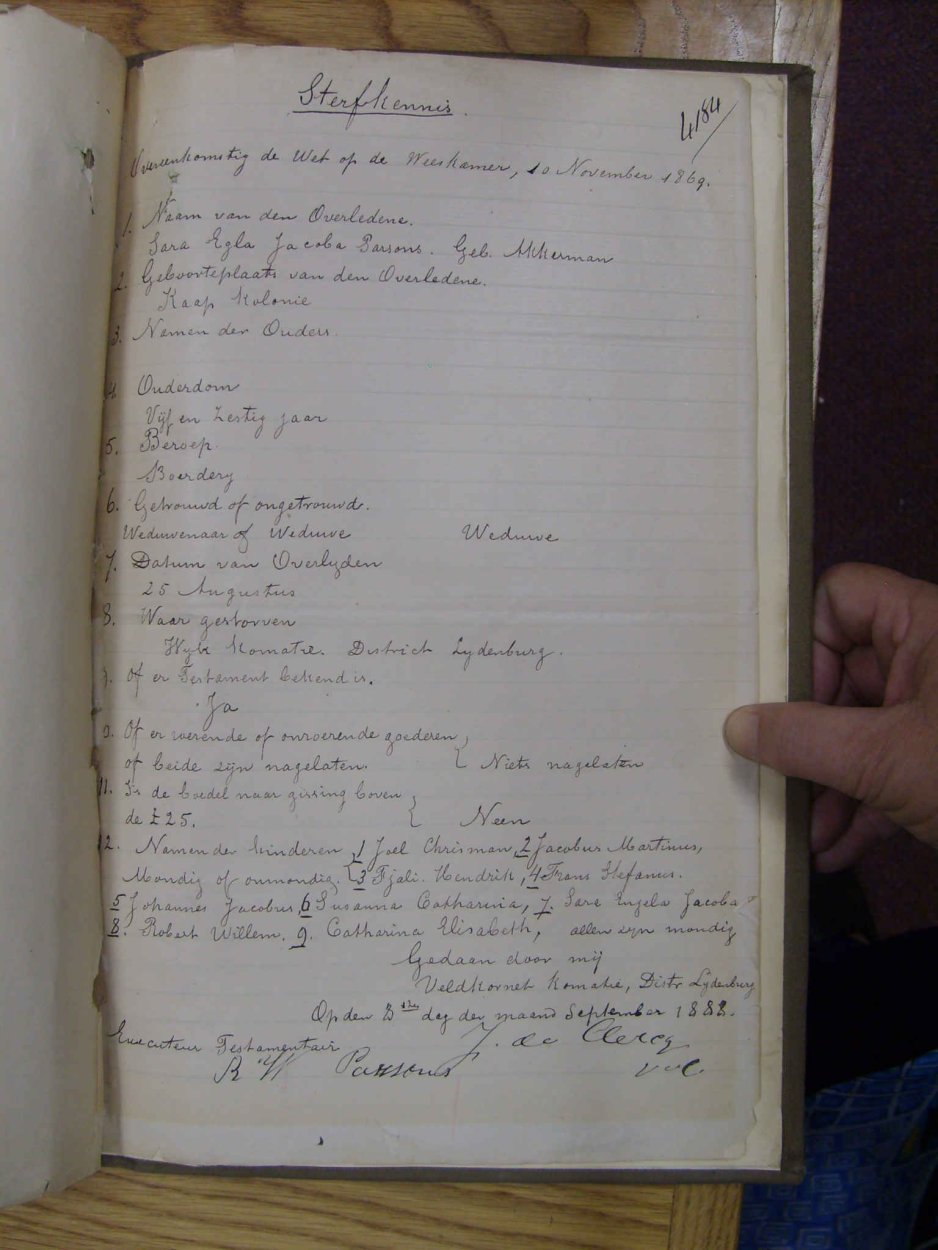 Sterfkennis.
4184
Overeenkomstig de Wet op de Weeskamer, 10 November 1869.
1. Naam van den Overledene.
Sara Egla Jacoba Parsons. Geb. Akkerman
2. Geboorteplaats van den Overledene.
Kaap Kolonie
3. Namen der Ouders.
4. Ouderdom
Vijf en Zestig jaar
5. Beroep.
Boerdery
6. Getrouwd of ongetrouwd.
Weduwenaar of Weduwe Weduwe
7. Datum van Overlyden
25 Augustus
8. Waar gestorven
Wyk Komatie. District Lydenburg.
9. Of er Testament bekend is.
Ja
Of er roerende of onroerende goederen
of beide zyn nagelaten. Niets nagelaten
11. Is de boedel naar gissing boven
de £25. Neen
12. Namen der kinderen 1 Joel Chrisman, 2 Jacobus Martinus,
Mondig of onmondig. 3 Tjali. Hendrik, 4 Frans Stefanus.
5 Johannes Jacobus, 6 Susanna Catharina, 7. Sara Engela Jacoba
8. Robert Willem. 9. Catharina Elisabeth, allen zyn mondig
Gedaan door mij
Veldkornet Komatie, Distr Lydenburg
Op den dag der maand September 1888.
Executeur Testamentair J. de Clercq
R W Parsons